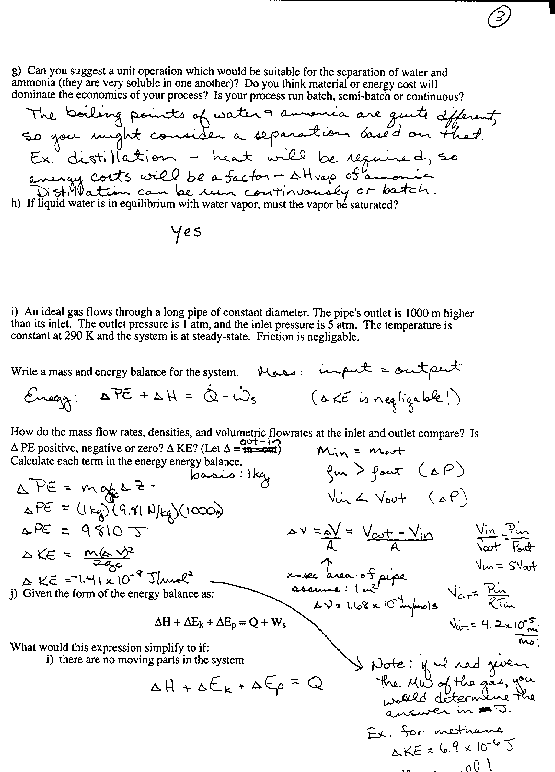 3
g) Can you suggest a unit operation which would be suitable for the separation of water and
ammonia (they are very soluble in one another)? Do you think material or energy cost will
dominate the economics of your process? Is your process run batch, semi-batch or continuous?
The boiling points of water & ammonia are quite different,
so you might consider a separation based on that.
Ex. distillation – heat will be required, so
energy costs will be a factor – ΔHvap of ammonia
Distillation can be run continuously or batch.
h) If liquid water is in equilibrium with water vapor, must the vapor be saturated?
yes
i) An ideal gas flows through a long pipe of constant diameter. The pipe's outlet is 1000 m higher
than its inlet. The outlet pressure is 1 atm, and the inlet pressure is 5 atm. The temperature is
constant at 290 K and the system is at steady-state. Friction is negligible.
Write a mass and energy balance for the system. Mass: input = output
Energy: ΔPE + ΔH = Q̇ - Ẇs (ΔKE is negligable!)
How do the mass flow rates, densities, and volumetric flowrates at the inlet and outlet compare? Is
Δ PE positive, negative or zero? Δ KE? (Let Δ = out-in)
Calculate each term in the energy energy balance.
basis: 1kg
Min = Mout
ρin > ρout (ΔP)
Vin < Vout (ΔP)
ΔPE = mg Δz
ΔPE = (1kg)(9.81 N/kg)(1000m)
ΔPE = 9810 J
ΔKE = mΔv²/2gc
ΔKE = -1.41 x 10⁻⁸ J/mol²
Δv = ΔV/A = Vout - Vin/A
x-sec area of pipe
assume: 1m²
Vin/Vout Pin/Pout
Vin = 5Vout
j) Given the form of the energy balance as:
ΔH + ΔEk + ΔEp = Q + Ws
What would this expression simplify to if:
i) there are no moving parts in the system
ΔH + ΔEk + ΔEp = Q
Note: if u had given
the MW of the gas, you
would determine the
answer in J.
Ex. for methane
ΔKE = 6.9 x 10⁻⁶ J